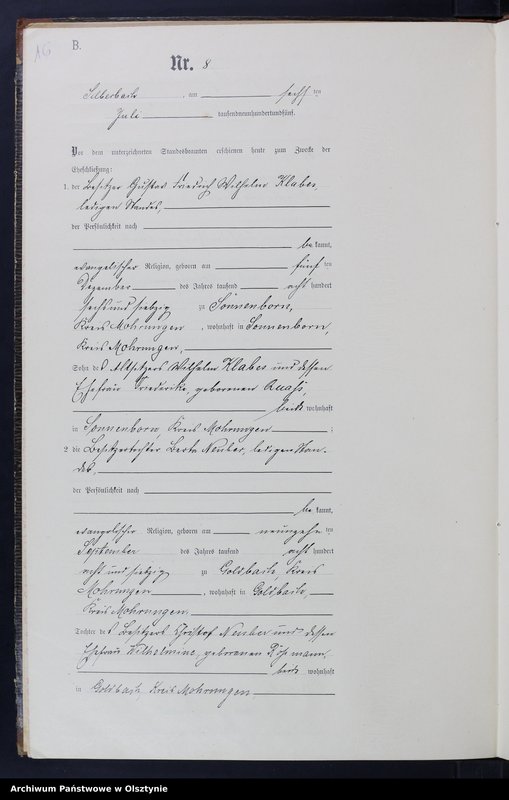 AG
B.
Nr. 8
Silberbach, am sechsten
Juli tausendneunhundertundfünf.
Vor dem unterzeichneten Standesbeamten erschienen heute zum Zwecke der
Eheschließung:
1. der Besitzer Gustav Friedrich Wilhelm Klabes,
ledigen Standes,
der Persönlichkeit nach
bekannt,
evangelischer Religion, geboren am fünften
Dezember des Jahres tausend acht hundert
sechsundsiebzig zu Sonnenborn,
Kreis Mohrungen, wohnhaft in Sonnenborn,
Kreis Mohrungen,
Sohn des Altsitzers Wilhelm Klabes und dessen
Ehefrau Friederike, geborenen Quass,
beide wohnhaft
in Sonnenborn, Kreis Mohrungen;
2 die Besitzertochter Berta Neuber, ledigen Stan-
des,
der Persönlichkeit nach
bekannt,
evangelischer Religion, geboren am neunzehnten
September des Jahres tausend acht hundert
acht und siebzig zu Goldbach, Kreis
Mohrungen, wohnhaft in Goldbach,
Kreis Mohrungen,
Tochter des Besitzers Christof Neuber und dessen
Ehefrau Wilhelmine, geborenen
beide wohnhaft
in Goldbach, Kreis Mohrungen,
Archiwum Państwowe w Olsztynie